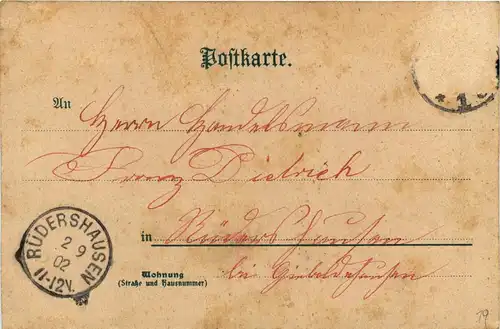 Postkarte.
* 1 *
An
Herrn Handelsmann
Franz Dietrich
in Rüdershausen
bei Gieboldehausen
Wohnung
(Straße und Hausnummer)
RÜDERSHAUSEN
2 9
02
11-12V.